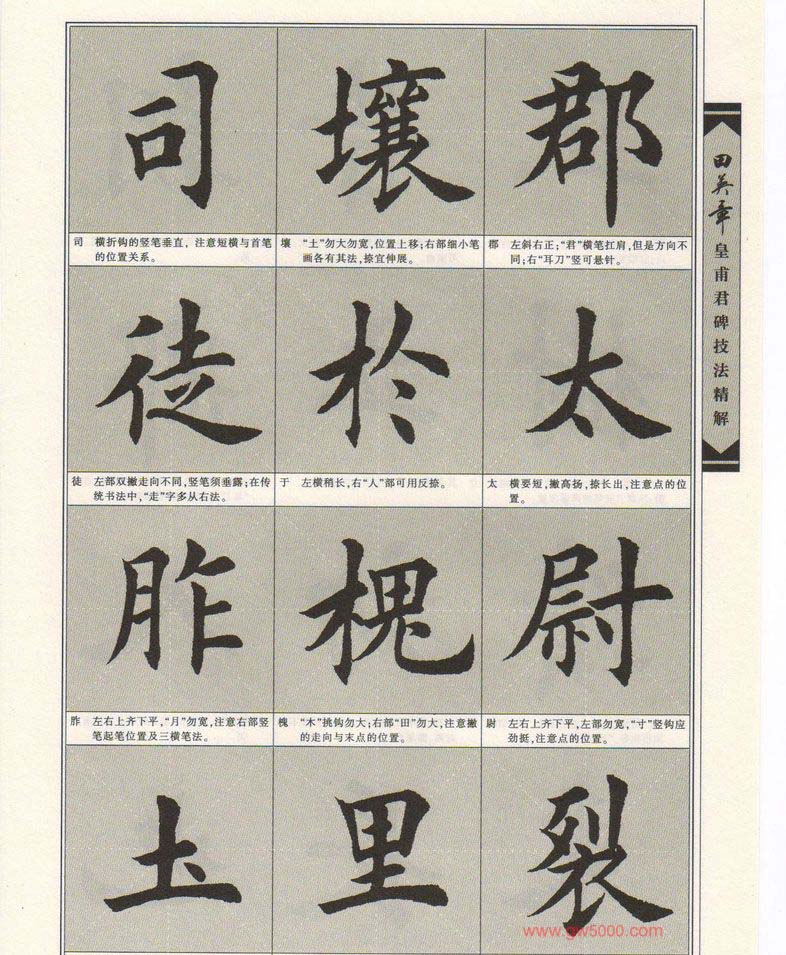 司
壤
郡
司 横折钩的竖笔垂直，注意短横与首笔
的位置关系。
壤 “土”勿大勿宽,位置上移;右部细小笔
画各有其法,捺宜伸展。
郡 左斜右正;“君”横笔扛肩,但是方向不
同;右“耳刀”竖可悬针。
徒
於
太
徒 左部双撇走向不同,竖笔须垂露;在传
统书法中,“走”字多从右法。
于 左横稍长,右“人”部可用反捺。
太 横要短,撇高扬,捺长出,注意点的位
置。
胙
槐
尉
胙 左右上齐下平,“月”勿宽,注意右部竖
笔起笔位置及三横笔法。
槐 “木”挑钩勿大;右部“田”勿大,注意撇
的走向与末点的位置。
尉 左右上齐下平,左部勿宽,“寸”竖钩应
劲挺,注意点的位置。
土
里
裂
田英章
皇甫君碑技法精解
www.gw5000.com